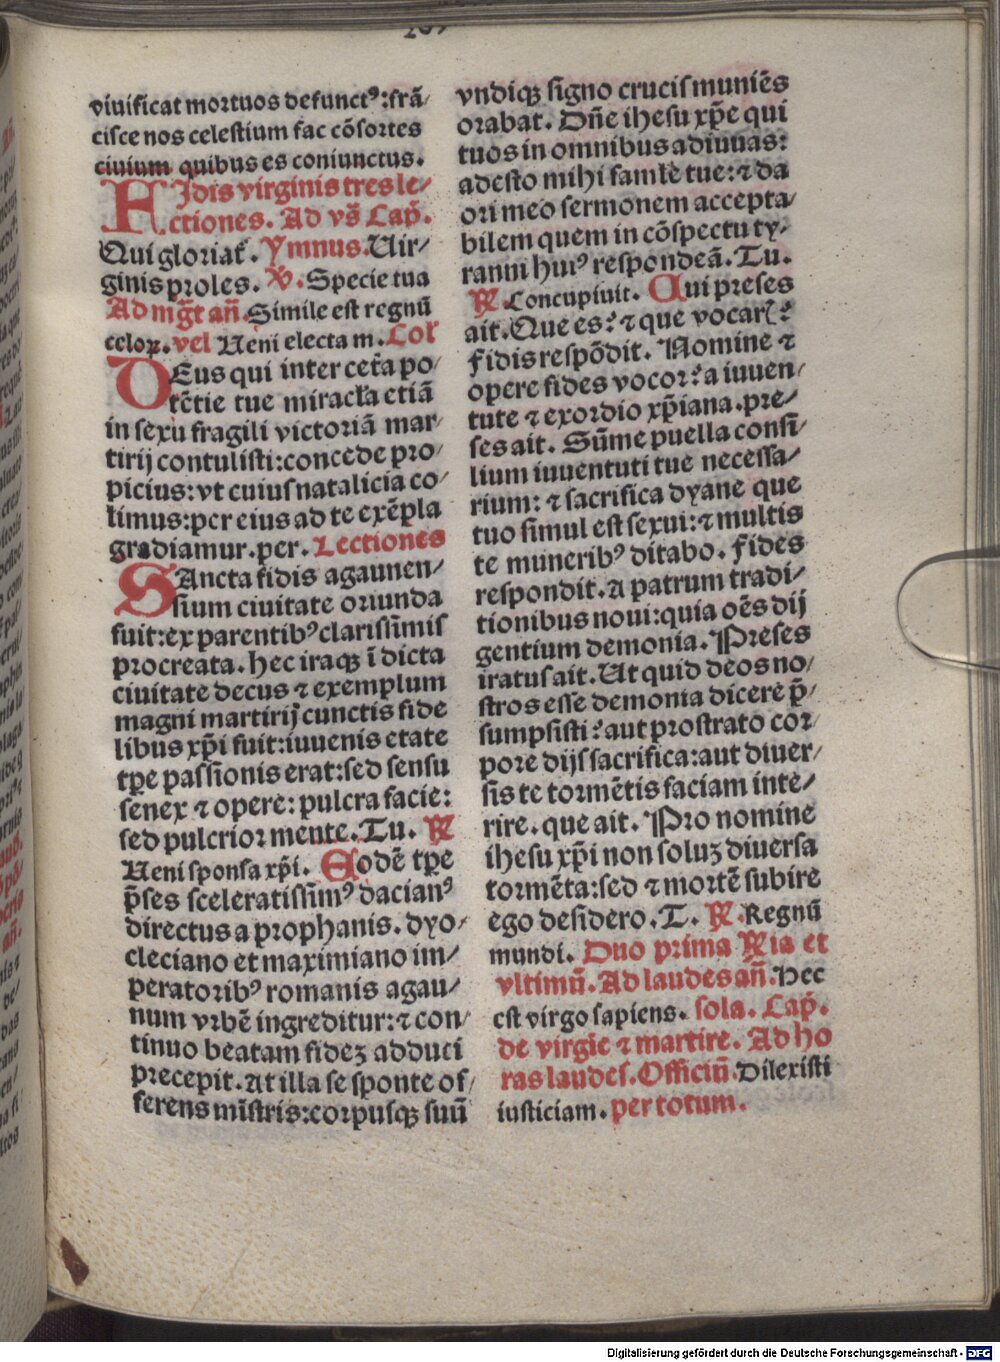 viuificat mortuos defunctꝰ:frã/
cisce nos celestium fac cõsortes
ciuium quibus es coniunctus.
FIdis virginis tres le/
ctiones. Ad vs̃ Cap̃.
Qui gloriat̃. Ymnus. Uir/
ginis proles. V. Specie tua
Ad mg̃t añ. Simile est regnũ
celoꝝ. vel Ueni electa m. Col̃
DEus qui inter cet̃a po/
tẽtie tue miracl̃a etiã
in sexu fragili victoriã mar/
tirij contulisti:concede pro/
picius:vt cuius natalicia co/
limus:per eius ad te exẽpla
gradiamur. per. Lectiones
SAncta fidis agaunen/
sium ciuitate oriunda
fuit:ex parentibꝰ clarissimis
procreata. hec itaqꝫ ĩ dicta
ciuitate decus ⁊ exemplum
magni martirij cunctis fide
libus xp̃i fuit:iuuenis etate
tp̃e passionis erat:sed sensu
senex ⁊ opere: pulcra facie:
sed pulcrior mente. Tu. R̃
Ueni sponsa xp̃i. Eodẽ tp̃e
p̃ses sceleratissimꝰ dacianꝰ
directus a prophanis. dyo/
cleciano et maximiano im/
peratoribꝰ romanis agau/
num vrbẽ ingreditur:⁊ con/
tinuo beatam fideꝫ adduci
precepit. at illa se sponte of/
ferens mĩstris:corpusqꝫ suũ
vndiqꝫ signo crucis muniẽs
orabat. Dñe ihesu xp̃e qui
tuos in omnibus adiuuas:
adesto mihi famlẽ tue:⁊ da
ori meo sermonem accepta/
bilem quem in cõspectu ty/
ranni huiꝰ respondeã. Tu.
R̃. Concupiuit. Cui preses
ait. Que es? ⁊ que vocaris?
Fidis respõdit. Nomine ⁊
opere fides vocor:a iuuen/
tute ⁊ exordio xp̃iana. pre/
ses ait. Sũme puella consi/
lium iuuentuti tue necessa/
rium: ⁊ sacrifica dyane que
tuo simul est sexui:⁊ multis
te muneribꝰ ditabo. fides
respondit. a patrum tradi/
tionibus noui:quia oẽs dij
gentium demonia. Preses
iratus ait. Ut quid deos no/
stros esse demonia dicere p̃/
sumpsisti? aut prostrato cor/
pore dijs sacrifica:aut diuer/
sis te tormẽtis faciam inte/
rire. que ait. Pro nomine
ihesu xp̃i non soluꝫ diuersa
tormẽta:sed ⁊ mortẽ subire
ego desidero. T. R̃. Regnũ
mundi. Duo prima R̃ia et
vltimũ. Ad laudes añ. Hec
est virgo sapiens. sola. Cap̃.
de virgĩe ⁊ martire. Ad ho
ras laudes. Officiũ. Dilexisti
iusticiam. per totum.
Digitalisierung gefördert durch die Deutsche Forschungsgemeinschaft - DFG